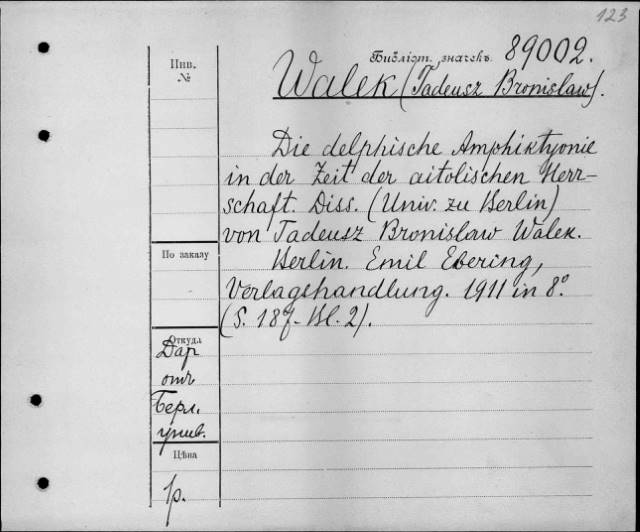 123
Инв.
№
Библіот. значекъ. 89002.
Walek (Tadeusz Bronislaw).
Die delphische Amphiktyonie
in der Zeit der aitolischen Herr-
schaft. Diss. (Univ. zu Berlin)
von Tadeusz Bronislaw Walek.
Berlin. Emil Ebering,
Verlagshandlung. 1911 in 8º.
(S. 187-Bl. 2).
По заказу
Откуда
Дар
отъ
Берл.
унив.
Цѣна
р.